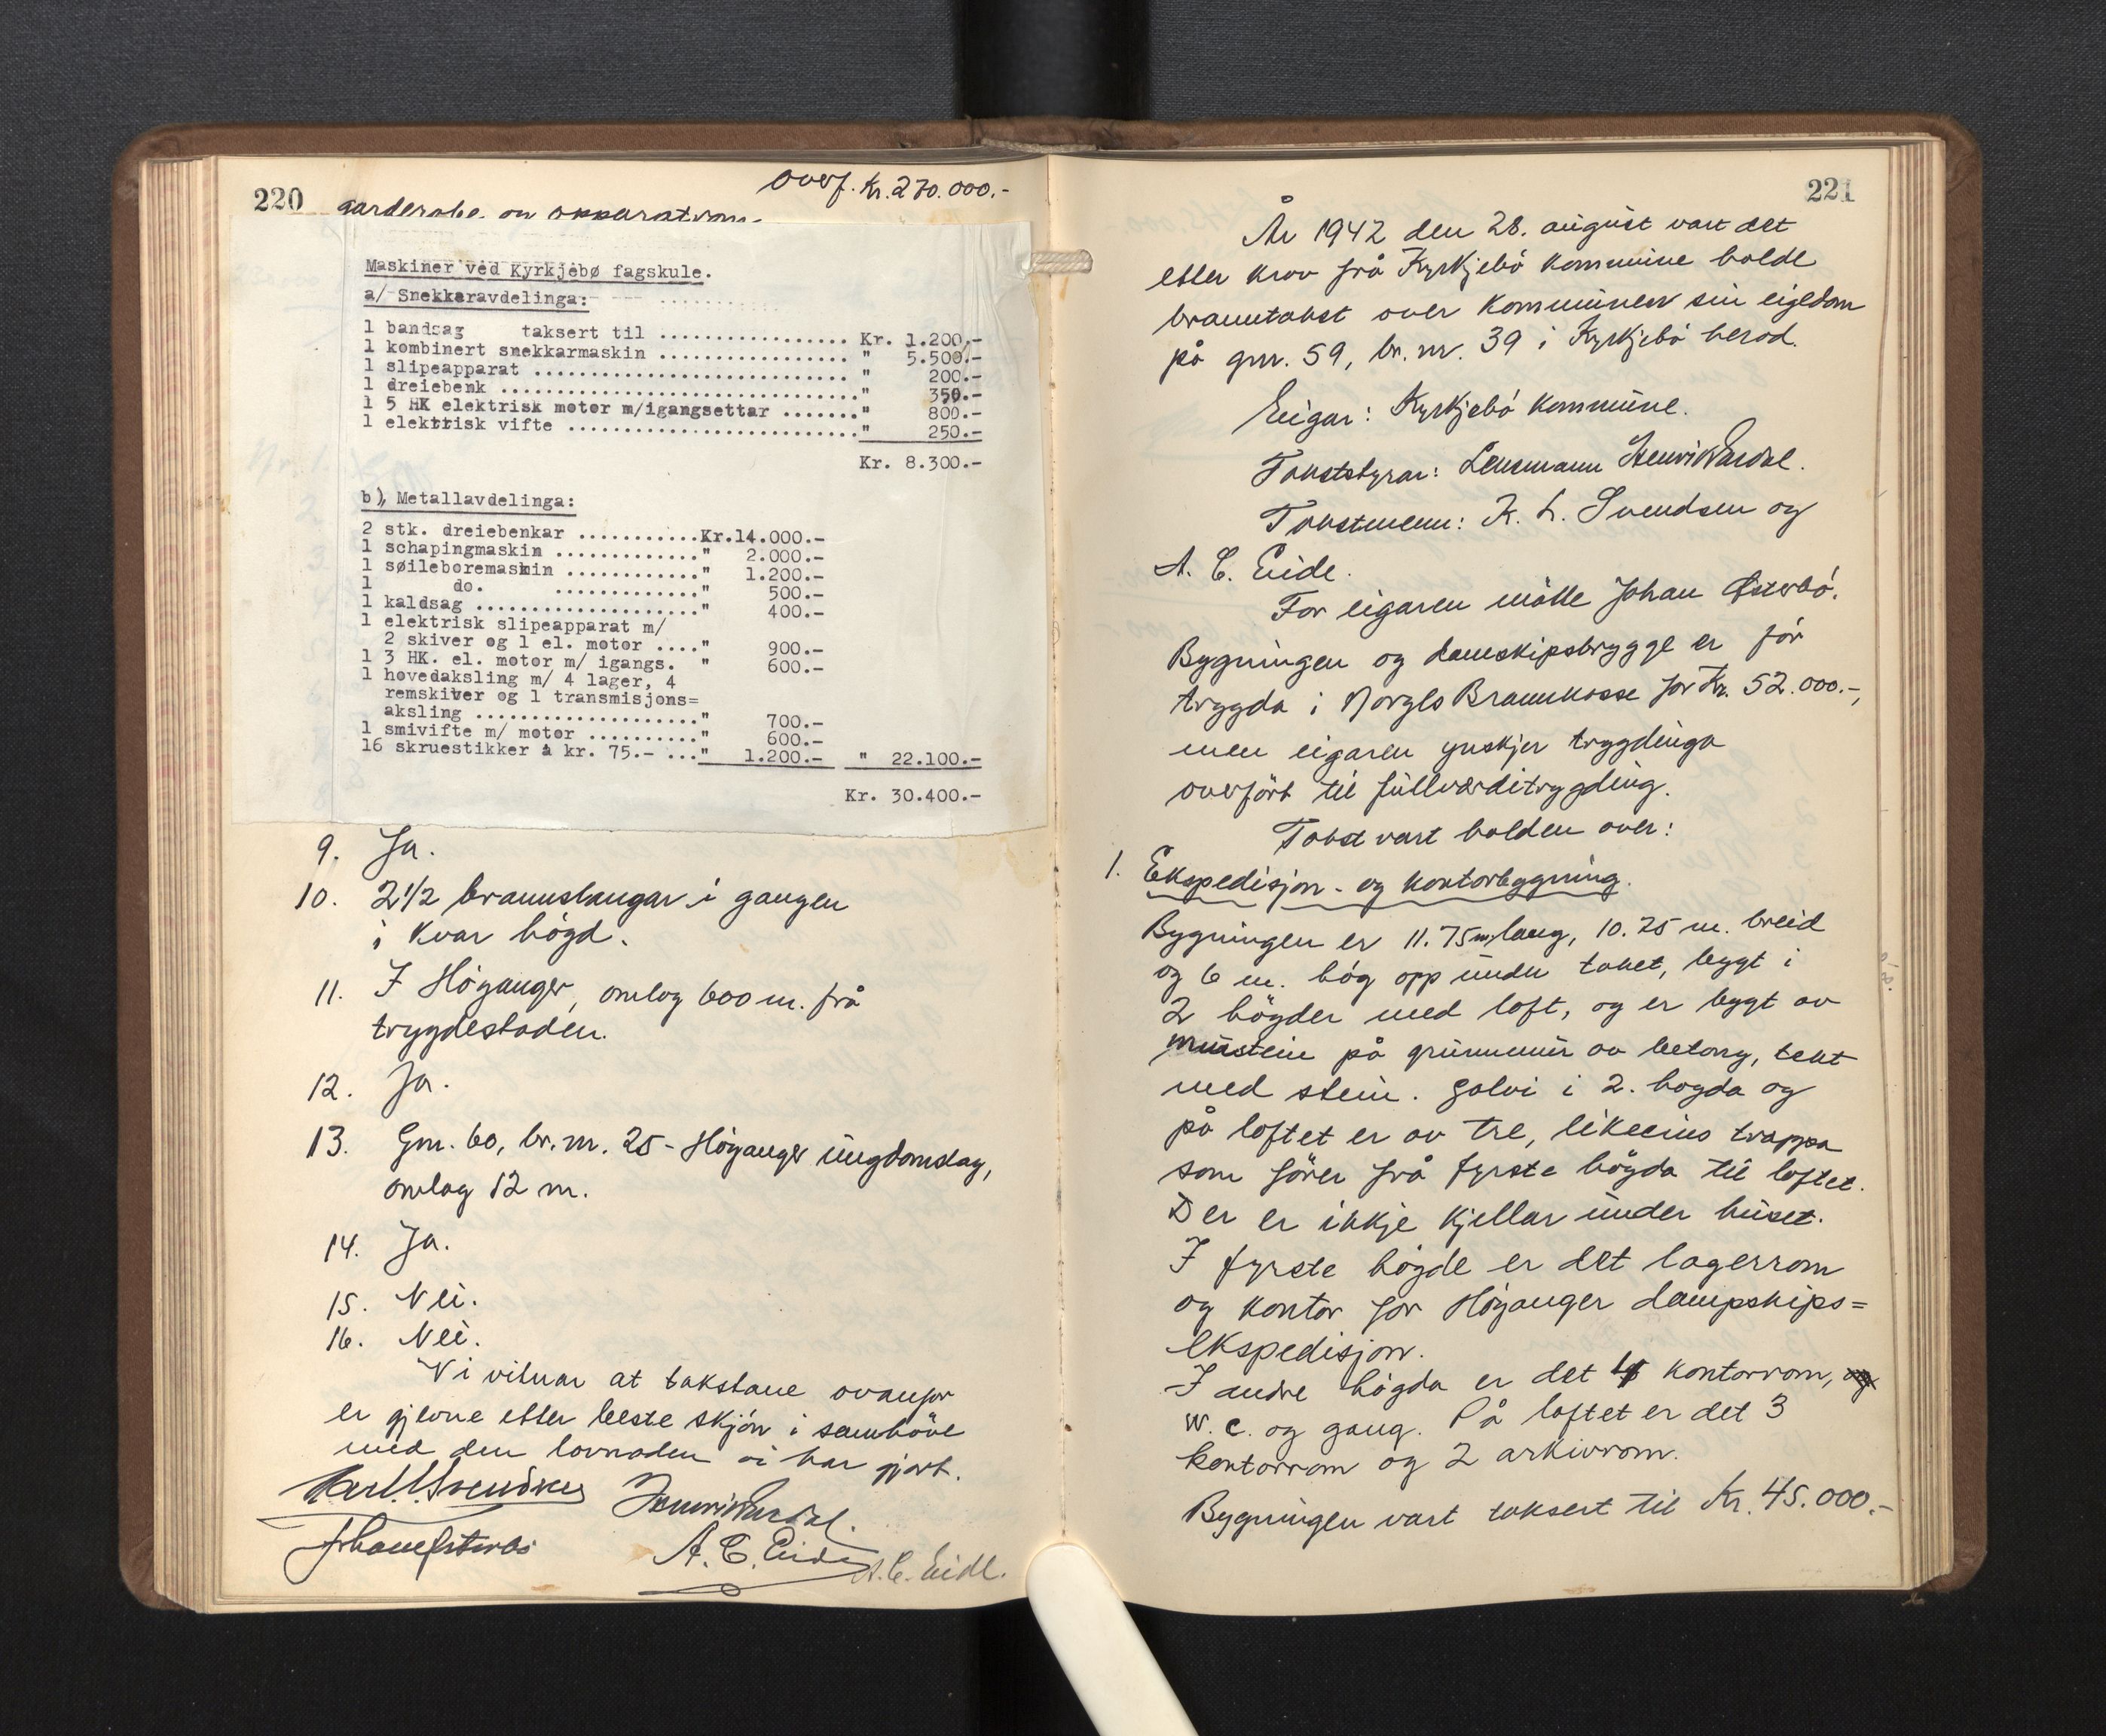 220
Overf. Kr. 270.000.-
garderobe og apparatrom.
Maskiner ved Kyrkjebø fagskule.
a/ Snekkeravdelinga:
1 bandsag taksert til .................. Kr. 1.200,-
1 kombinert snekkarmaskin .................. " 5.500.-
1 slipeapparat ............................. " 200.-
1 dreiebenk ................................ " 350.-
1 5 HK elektrisk motor m/igangsettar ......." 800.-
1 elektrisk vifte .........................." 250.-
Kr. 8.300.-
b), Metallavdelinga:
2 stk. dreiebenkar ...........Kr.14.000.-
1 schapingmaskin ............." 2.000.-
1 søileboremaskin ............" 1.200.-
1 do. ............." 500.-
1 kaldsag ...................." 400.-
1 elektrisk slipeapparat m/
2 skiver og 1 el. motor ...." 900.-
1 3 HK. el. motor m/ igangs. " 600.-
1 hovedaksling m/ 4 lager, 4
remskiver og 1 transmisjons=
aksling ....................." 700.-
1 smivifte m/ motor .........." 600.-
16 skruestikker à kr. 75.- ..." 1.200.- " 22.100.-
Kr. 30.400.-
9. Ja.
10. 2 1/2 brannslangar i gangen
i kvar högd.
11. I Höyanger, omlag 600 m. frå
trygdestaden.
12. Ja.
13. Gnr. 60, br. nr. 25 - Höyanger ungdomslag,
omlag 12 m.
14. Ja.
15. Nei.
16. Nei.
Vi vitnar at takstane ovanfor
er gjevne etter beste skjön i samhöve
med den lovnaden vi har gjort.
Karl L. Svendsen Henrik Vardal.
Johan Østerbö A. C. Eide A. C. Eide.
221
År 1942 den 28. august vart det
etter krav frå Kyrkjebö kommune halde
branntakst over kommunen sin eigedom
på gnr. 59, br. nr. 39 i Kyrkjebö herad.
Eigar: Kyrkjebö kommune.
Takststyrar: Lensmann Henrik Vardal.
Takstmenn: K. L. Svendsen og
A. C. Eide.
For eigaren mötte Johan Østerbö.
Bygningen og dampskipsbrygge er för
trygda i Norges Brannkasse for Kr. 52.000.-,
men eigaren ynskjer trygdinga
overfört til fullverditrygding.
Takst vart halden over:
1. Ekspedisjon- og kontorbygning.
Bygningen er 11.75 m lang, 10.25 m. breid
og 6 m. hög opp under taket, bygt i
2 högder med loft, og er bygt av
murstein på grunnmur av betong, tekt
med stein. Golvi i 2. högda og
på loftet er av tre, likeeins trappa
som förer frå fyrste högda til loftet.
Der er ikkje kjellar under huset.
I fyrste högde er det lagerrom
og kontor for Höyanger dampskips=
ekspedisjon.
I andre högda er det 4 kontorrom, og
w.c. og gang. På loftet er det 3
kontorrom og 2 arkivrom.
Bygningen vart taksert til Kr. 45.000.-